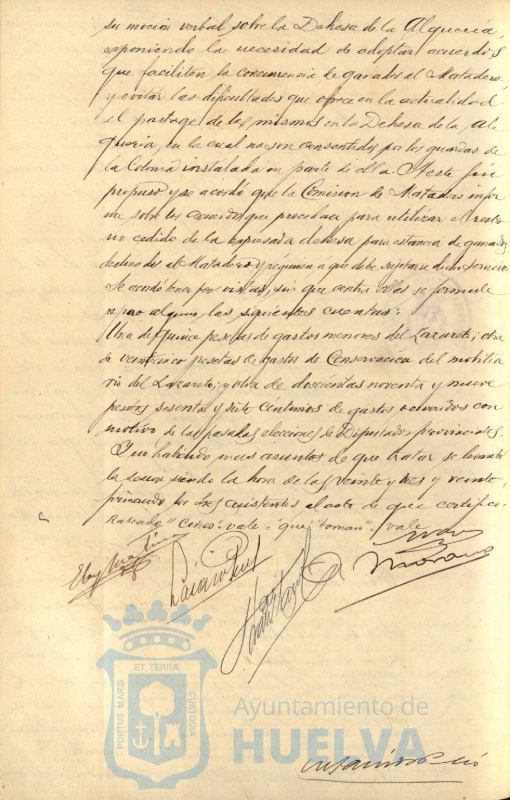 su moción verbal sobre la Dehesa de la Alquería,
exponiendo la necesidad de adoptar acuerdos
que faciliten la concurrencia de ganados al Matadero
y evitar las dificultades que ofrece en la actualidad
el pastage de los mismos en la Dehesa de la Al
quería, en la cual no son consentidos por los guardas de
la Colonia instalada en parte de ella. A este fin
propuso y se acordó que la Comision de Matadero infor
me sobre los acuerdos que procedan para utilizar el resto
no cedido de la expresada dehesa para estancia de ganados
destinados al Matadero y régimen a que debe sujetarse dicho servicio
Se acordó tener por vistas, sin que contra ellas se formule
reparo alguno, las siguientes cuentas:
Una de quince pesetas de gastos menores del Lazareto; otra
de veinticinco pesetas de gastos de Conservacion del mobilia
rio del Lazareto; y otra de doscientas noventa y nueve
pesetas sesenta y siete céntimos de gastos ocurridos con
motivo de las pasadas elecciones de Diputados provinciales.
Y no habiendo mas asuntos de que tratar se levantó
la sesion siendo la hora de las veinte y tres y veinte,
firmando los Sres asistentes al acto de que certifico.
Raspado "Cinco" vale = "que" "toman" vale
Eloy Martin
Moreno
PORTUS MARIS
ET TERRÆ
CUSTODIA
Ayuntamiento de
HUELVA